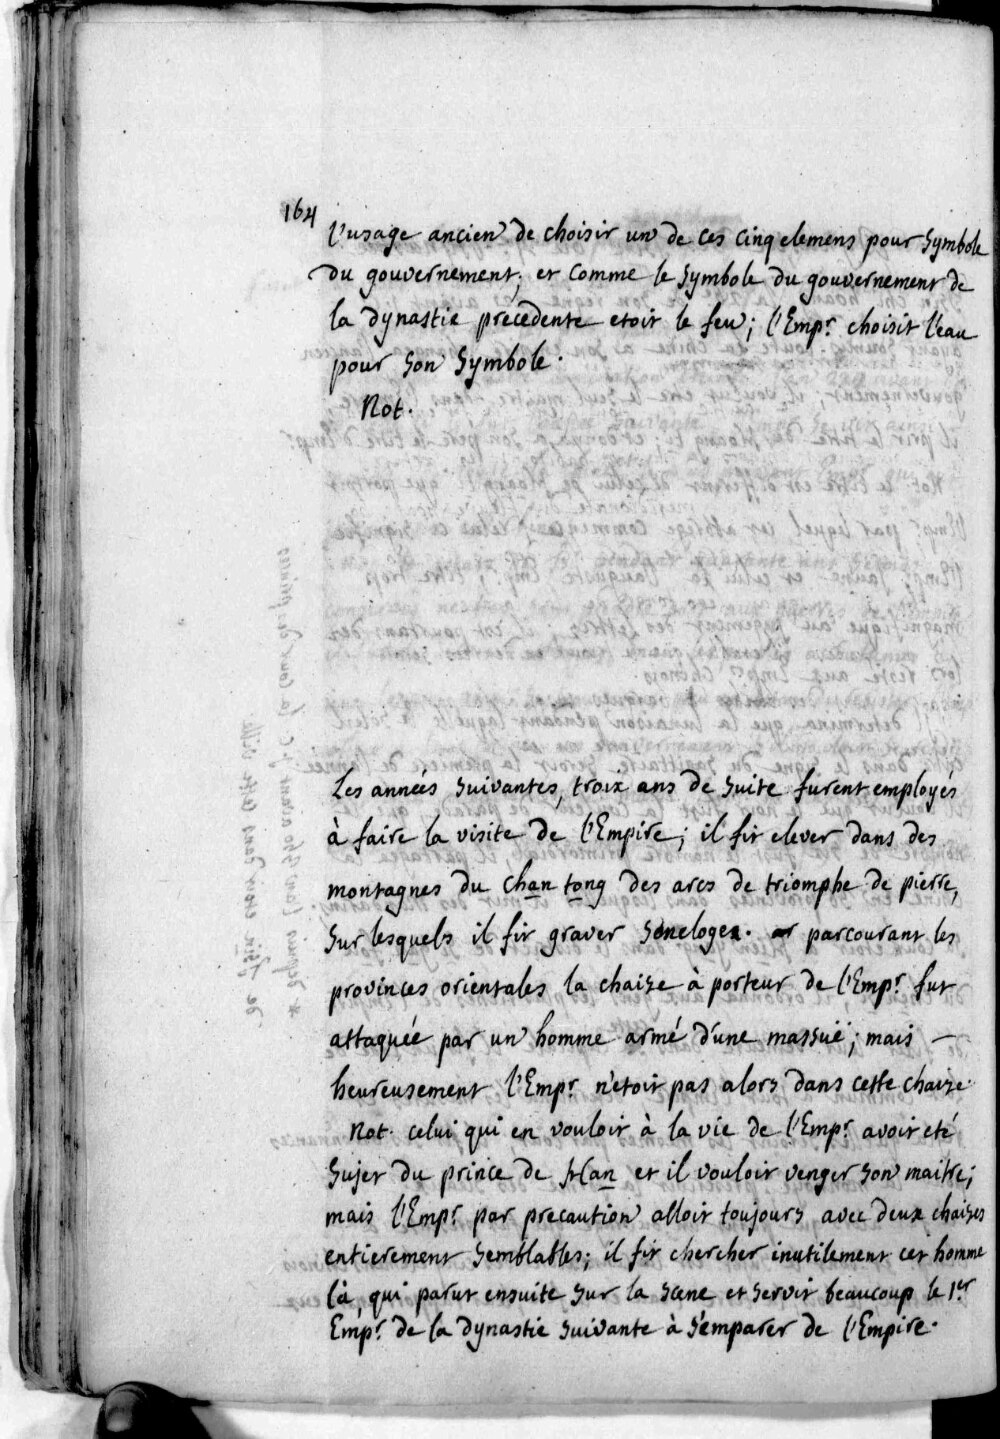 164
l'usage ancien de choisir un de ces cinq elemens pour Symbole
du gouvernement; et comme le symbole du gouvernement de
la dynastie precedente etoit le feu; l'Empr. choisit l'eau
pour son Symbole.
Not.
Les années suivantes, troix ans de suite furent employés
à faire la visite de l'Empire; il fit elever dans des
montagnes du chan tong des arcs de triomphe de pierre,
sur lesquels il fit graver son eloge. parcourant les
provinces orientales la chaize à porteur de l'Empr. fut
attaquée par un homme armé d'une massüe; mais —
heureusement l'Empr. n'etoit pas alors dans cette chaize
Not. celui qui en vouloit à la vie de l'Empr. avoit eté
sujet du prince de han et il vouloit venger son maitre;
mais l'Empr. par precaution alloit toujours avec deux chaizes
entierement semblables; il fit chercher inutilement cet homme
là, qui parut ensuite sur la scene et servit beaucoup le 1er
Empr. de la dynastie suivante à s'emparer de l'Empire.